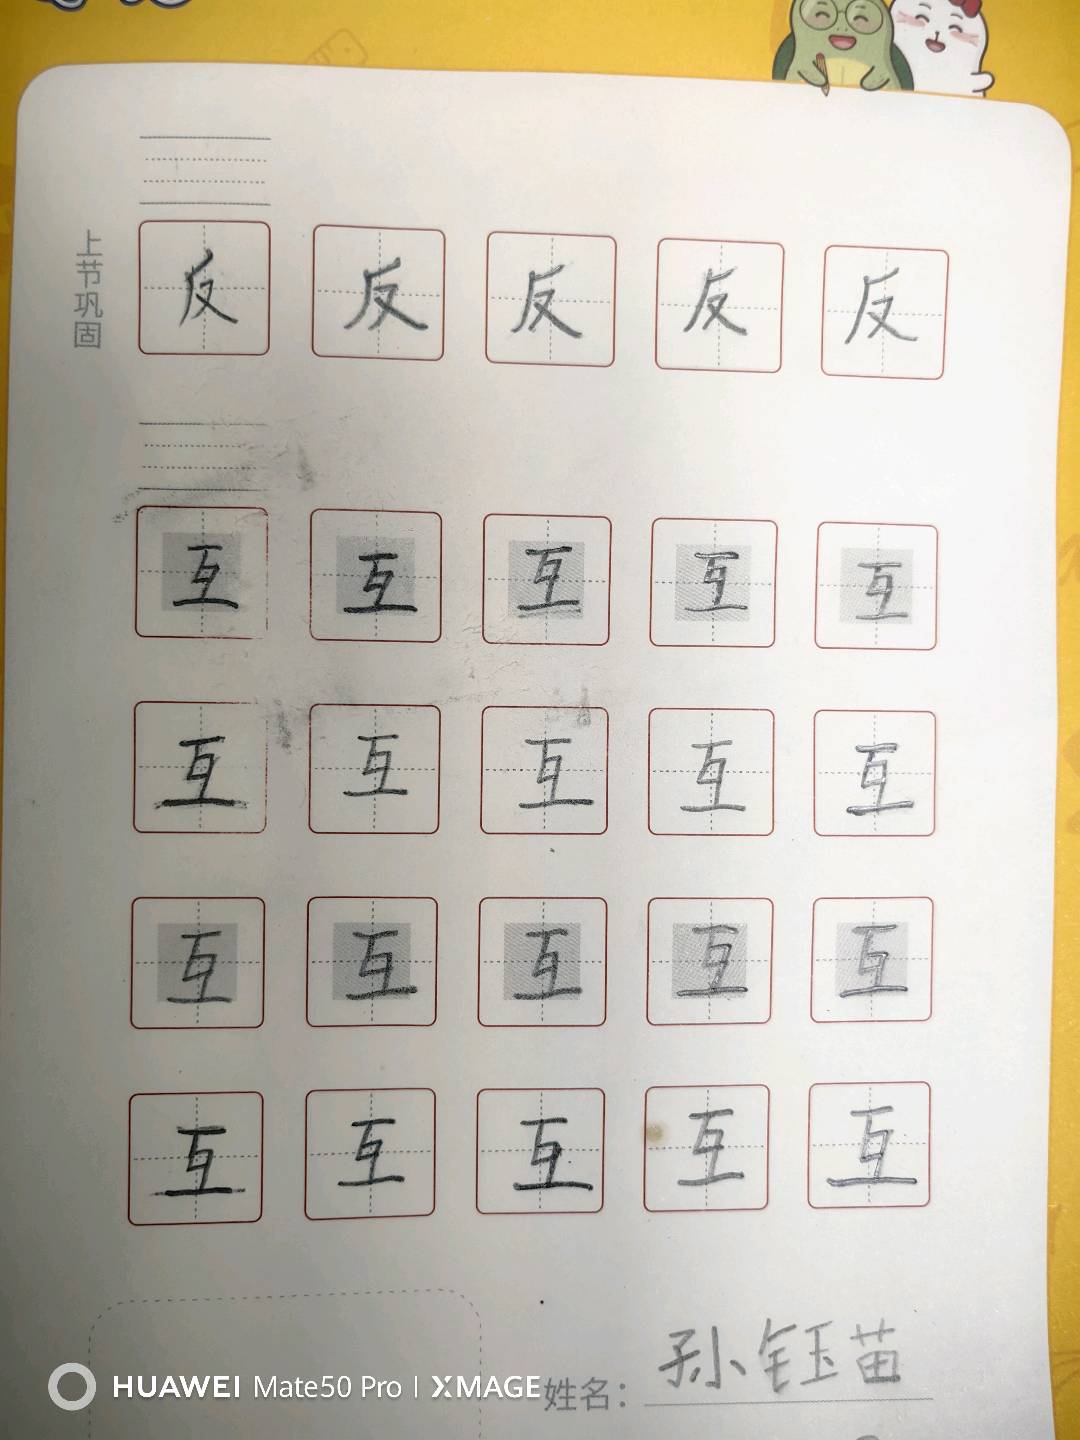 上节巩固
反 反 反 反 反
互 互 互 互 互
互 互 互 互 互
互 互 互 互 互
互 互 互 互 互
姓名: 孙钰苗
HUAWEI Mate50 Pro | XMAGE